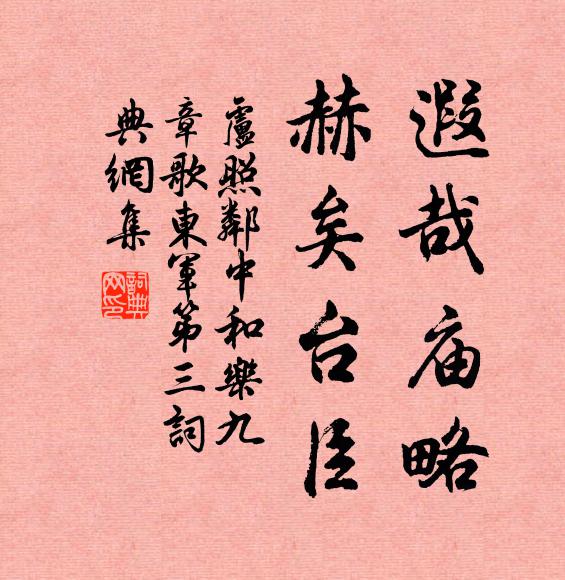 遐哉庙略
赫矣台臣
盧照鄰中和樂九
章歌東軍第三詞
典網集
詞典
网印